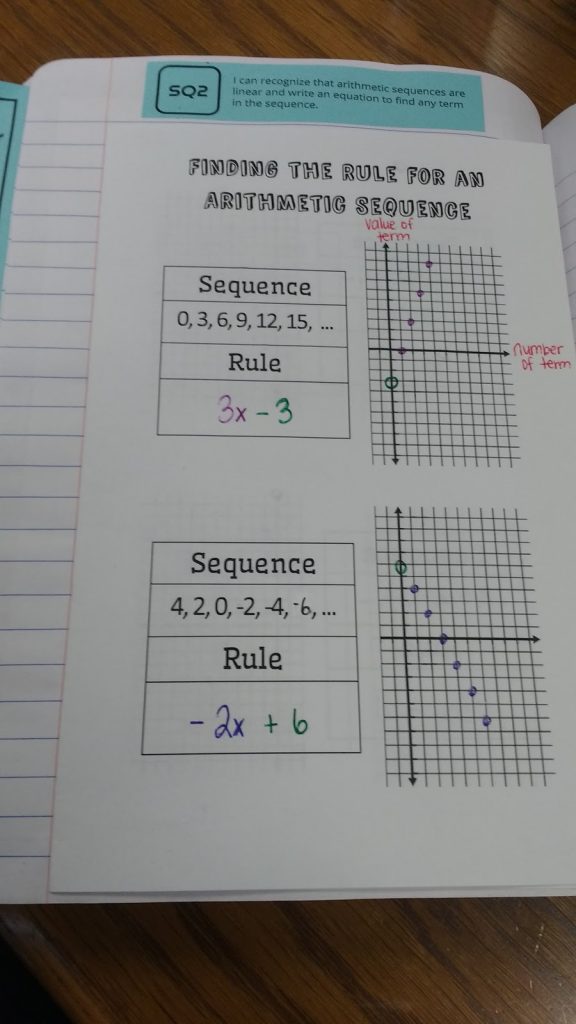 SQ2
I can recognize that arithmetic sequences are
linear and write an equation to find any term
in the sequence.
FINDING THE RULE FOR AN
ARITHMETIC SEQUENCE
value of
term
number
of term
Sequence
0, 3, 6, 9, 12, 15, ...
Rule
3x - 3
Sequence
4, 2, 0, -2, -4, -6, ...
Rule
- 2x + 6